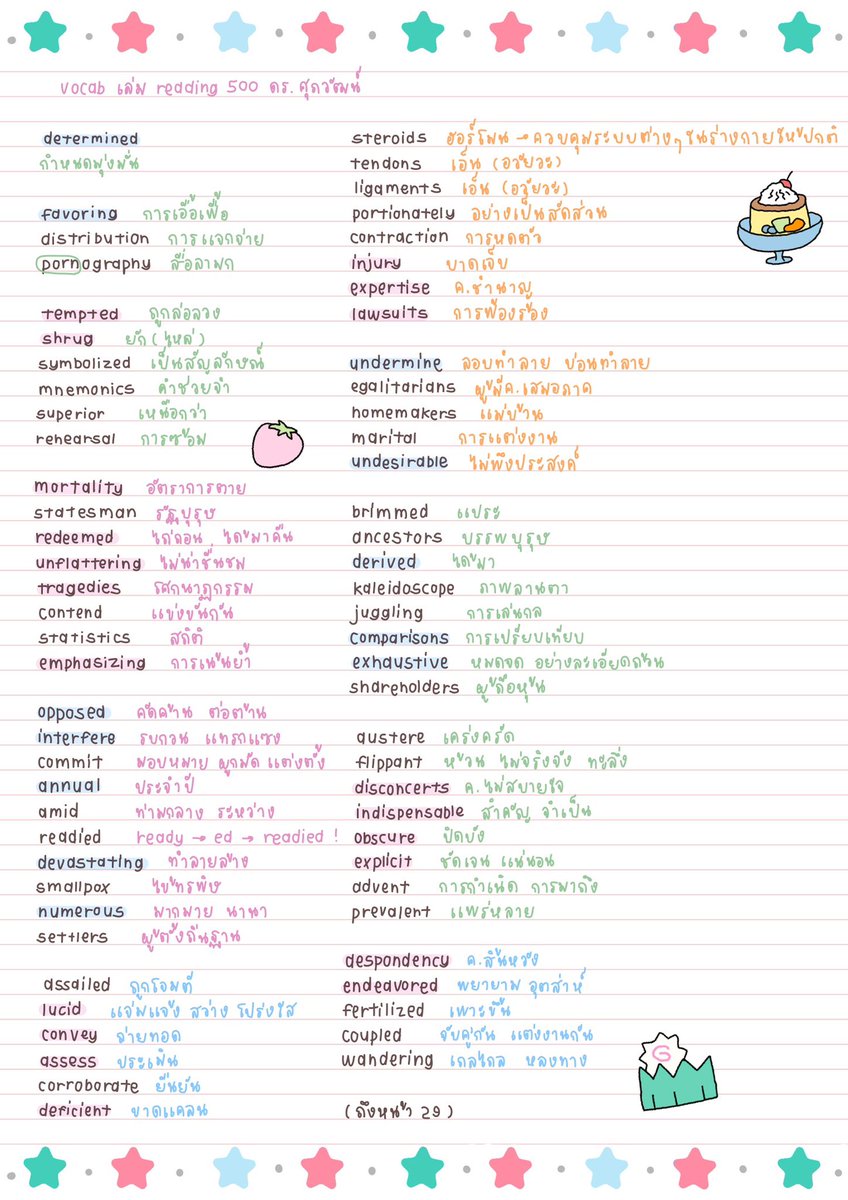 vocab เล่ม reading 500 ดร.ศุภวัฒน์
determined
กำหนดมุ่งมั่น
favoring การเอื้อเฟื้อ
distribution การแจกจ่าย
pornography สื่อลามก
tempted ถูกล่อลวง
shrug ยัก(ไหล่)
symbolized เป็นสัญลักษณ์
mnemonics คำช่วยจำ
superior เหนือกว่า
rehearsal การซ้อม
mortality อัตราการตาย
statesman รัฐบุรุษ
redeemed ไถ่ถอน ได้มาคืน
unflattering ไม่น่าชื่นชม
tragedies โศกนาฏกรรม
contend แข่งขันกัน
statistics สถิติ
emphasizing การเน้นย้ำ
opposed คัดค้าน ต่อต้าน
interfere รบกวน แทรกแซง
commit มอบหมาย ผูกมัด แต่งตั้ง
annual ประจำปี
amid ท่ามกลาง ระหว่าง
readied ready → ed → readied !
devastating ทำลายล้าง
smallpox ไข้ทรพิษ
numerous มากมาย นานา
settlers ผู้ตั้งถิ่นฐาน
assailed ถูกโจมตี
lucid แจ่มแจ้ง สว่าง โปร่งใส
convey ถ่ายทอด
assess ประเมิน
corroborate ยืนยัน
deficient ขาดแคลน
steroids ฮอร์โมน → ควบคุมระบบต่างๆในร่างกายให้ปกติ
tendons เอ็น (อวัยวะ)
ligaments เอ็น (อวัยวะ)
portionately อย่างเป็นสัดส่วน
contraction การหดตัว
injury บาดเจ็บ
expertise ค.ชำนาญ
lawsuits การฟ้องร้อง
undermine ลอบทำลาย บ่อนทำลาย
egalitarians ผู้มีค.เสมอภาค
homemakers แม่บ้าน
marital การแต่งงาน
undesirable ไม่พึงประสงค์
brimmed แประ
ancestors บรรพบุรุษ
derived ได้มา
kaleidoscope ภาพลานตา
juggling การเล่นกล
comparisons การเปรียบเทียบ
exhaustive หมดจด อย่างละเอียดถ้วน
shareholders ผู้ถือหุ้น
austere เคร่งครัด
flippant ห้วน ไม่จริงจัง ทะลึ่ง
disconcerts ค.ไม่สบายใจ
indispensable สำคัญ จำเป็น
obscure ปิดบัง
explicit ชัดเจน แน่นอน
advent การกำเนิด การมาถึง
prevalent แพร่หลาย
despondency ค.สิ้นหวัง
endeavored พยายาม อุตส่าห์
fertilized เพาะขึ้น
coupled จับคู่กัน แต่งงานกัน
wandering เถลไถล หลงทาง
(ถึงหน้า 29)